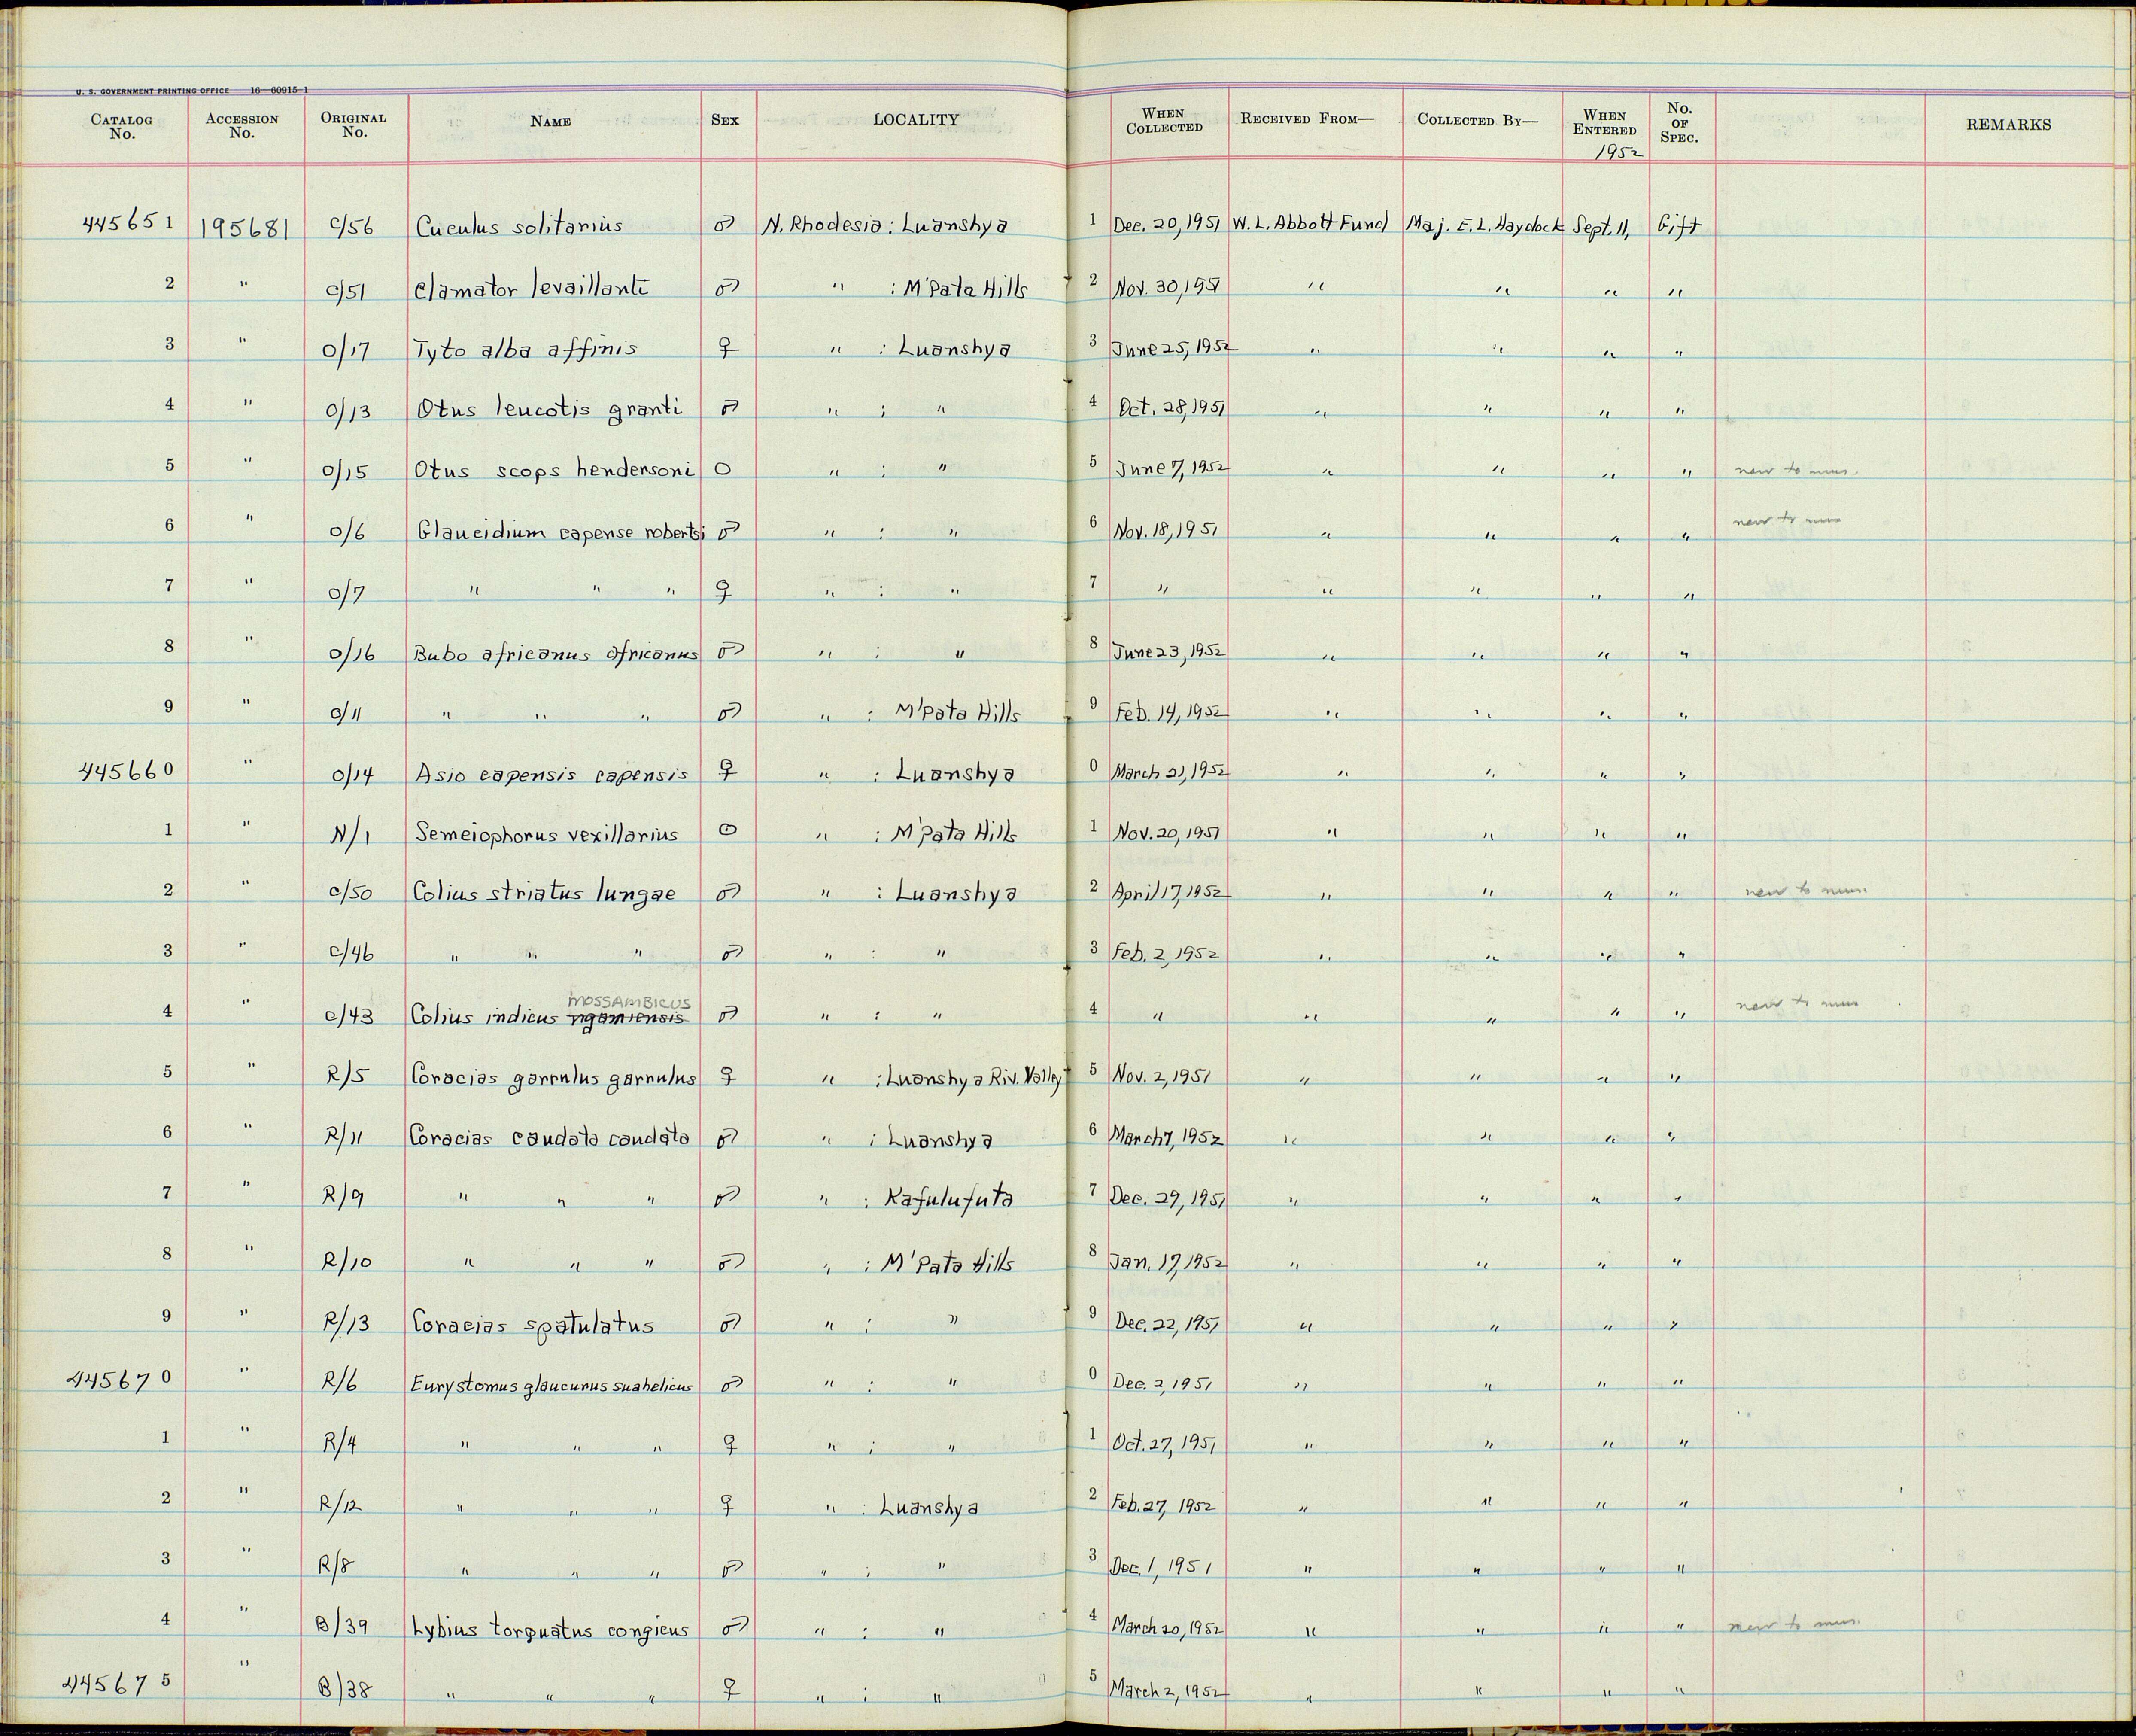 U. S. GOVERNMENT PRINTING OFFICE 16—60915-1
CATALOG No. ACCESSION No. ORIGINAL No. NAME SEX LOCALITY WHEN COLLECTED RECEIVED FROM— COLLECTED BY— WHEN ENTERED 1952 No. OF SPEC. REMARKS
445651 195681 C/56 Cuculus solitarius ♂ N. Rhodesia: Luanshya 1 Dec. 20, 1951 W. L. Abbott Fund Maj. E. L. Haydock Sept. 11, Gift
2 " C/51 Clamator levaillanti ♂ " : M'Pata Hills 2 Nov. 30, 1951 " " " "
3 " O/17 Tyto alba affinis ♀ " : Luanshya 3 June 25, 1952 " " " "
4 " O/13 Otus leucotis granti ♂ " : " 4 Oct. 28, 1951 " " " "
5 " O/15 Otus scops hendersoni O " : " 5 June 7, 1952 " " " " new to mus.
6 " O/6 Glaucidium capense robertsi ♂ " : " 6 Nov. 18, 1951 " " " " new to mus
7 " O/7 " " " ♀ " : " 7 " " " " "
8 " O/16 Bubo africanus africanus ♂ " : " 8 June 23, 1952 " " " "
9 " O/11 " " " ♂ " : M'Pata Hills 9 Feb. 14, 1952 " " " "
445660 " O/14 Asio capensis capensis ♀ " : Luanshya 0 March 21, 1952 " " " "
1 " N/1 Semeiophorus vexillarius O " : M'Pata Hills 1 Nov. 20, 1951 " " " "
2 " C/50 Colius striatus lungae ♂ " : Luanshya 2 April 17, 1952 " " " " new to mus
3 " C/46 " " " ♂ " : " 3 Feb. 2, 1952 " " " "
MOSSAMBICUS
4 " C/43 Colius indicus ngamiensis ♂ " : " 4 " " " " " new to mus
5 " R/5 Coracias garrulus garrulus ♀ " : Luanshya Riv. Valley 5 Nov. 2, 1951 " " " "
6 " R/11 Coracias caudata caudata ♂ " : Luanshya 6 March 7, 1952 " " " "
7 " R/9 " " " ♂ " : Kafulufuta 7 Dec. 29, 1951 " " " "
8 " R/10 " " " ♂ " : M'Pata Hills 8 Jan. 17, 1952 " " " "
9 " R/13 Coracias spatulatus ♂ " : " 9 Dec. 22, 1951 " " " "
445670 " R/6 Eurystomus glaucurus suahelicus ♂ " : " 0 Dec. 2, 1951 " " " "
1 " R/4 " " " ♀ " : " 1 Oct. 27, 1951 " " " "
2 " R/12 " " " ♀ " : Luanshya 2 Feb. 27, 1952 " " " "
3 " R/8 " " " ♂ " : " 3 Dec. 1, 1951 " " " "
4 " B/39 Lybius torquatus congicus ♂ " : " 4 March 20, 1952 " " " " new to mus.
445675 " B/38 " " " ♀ " : " 5 March 2, 1952 " " " "